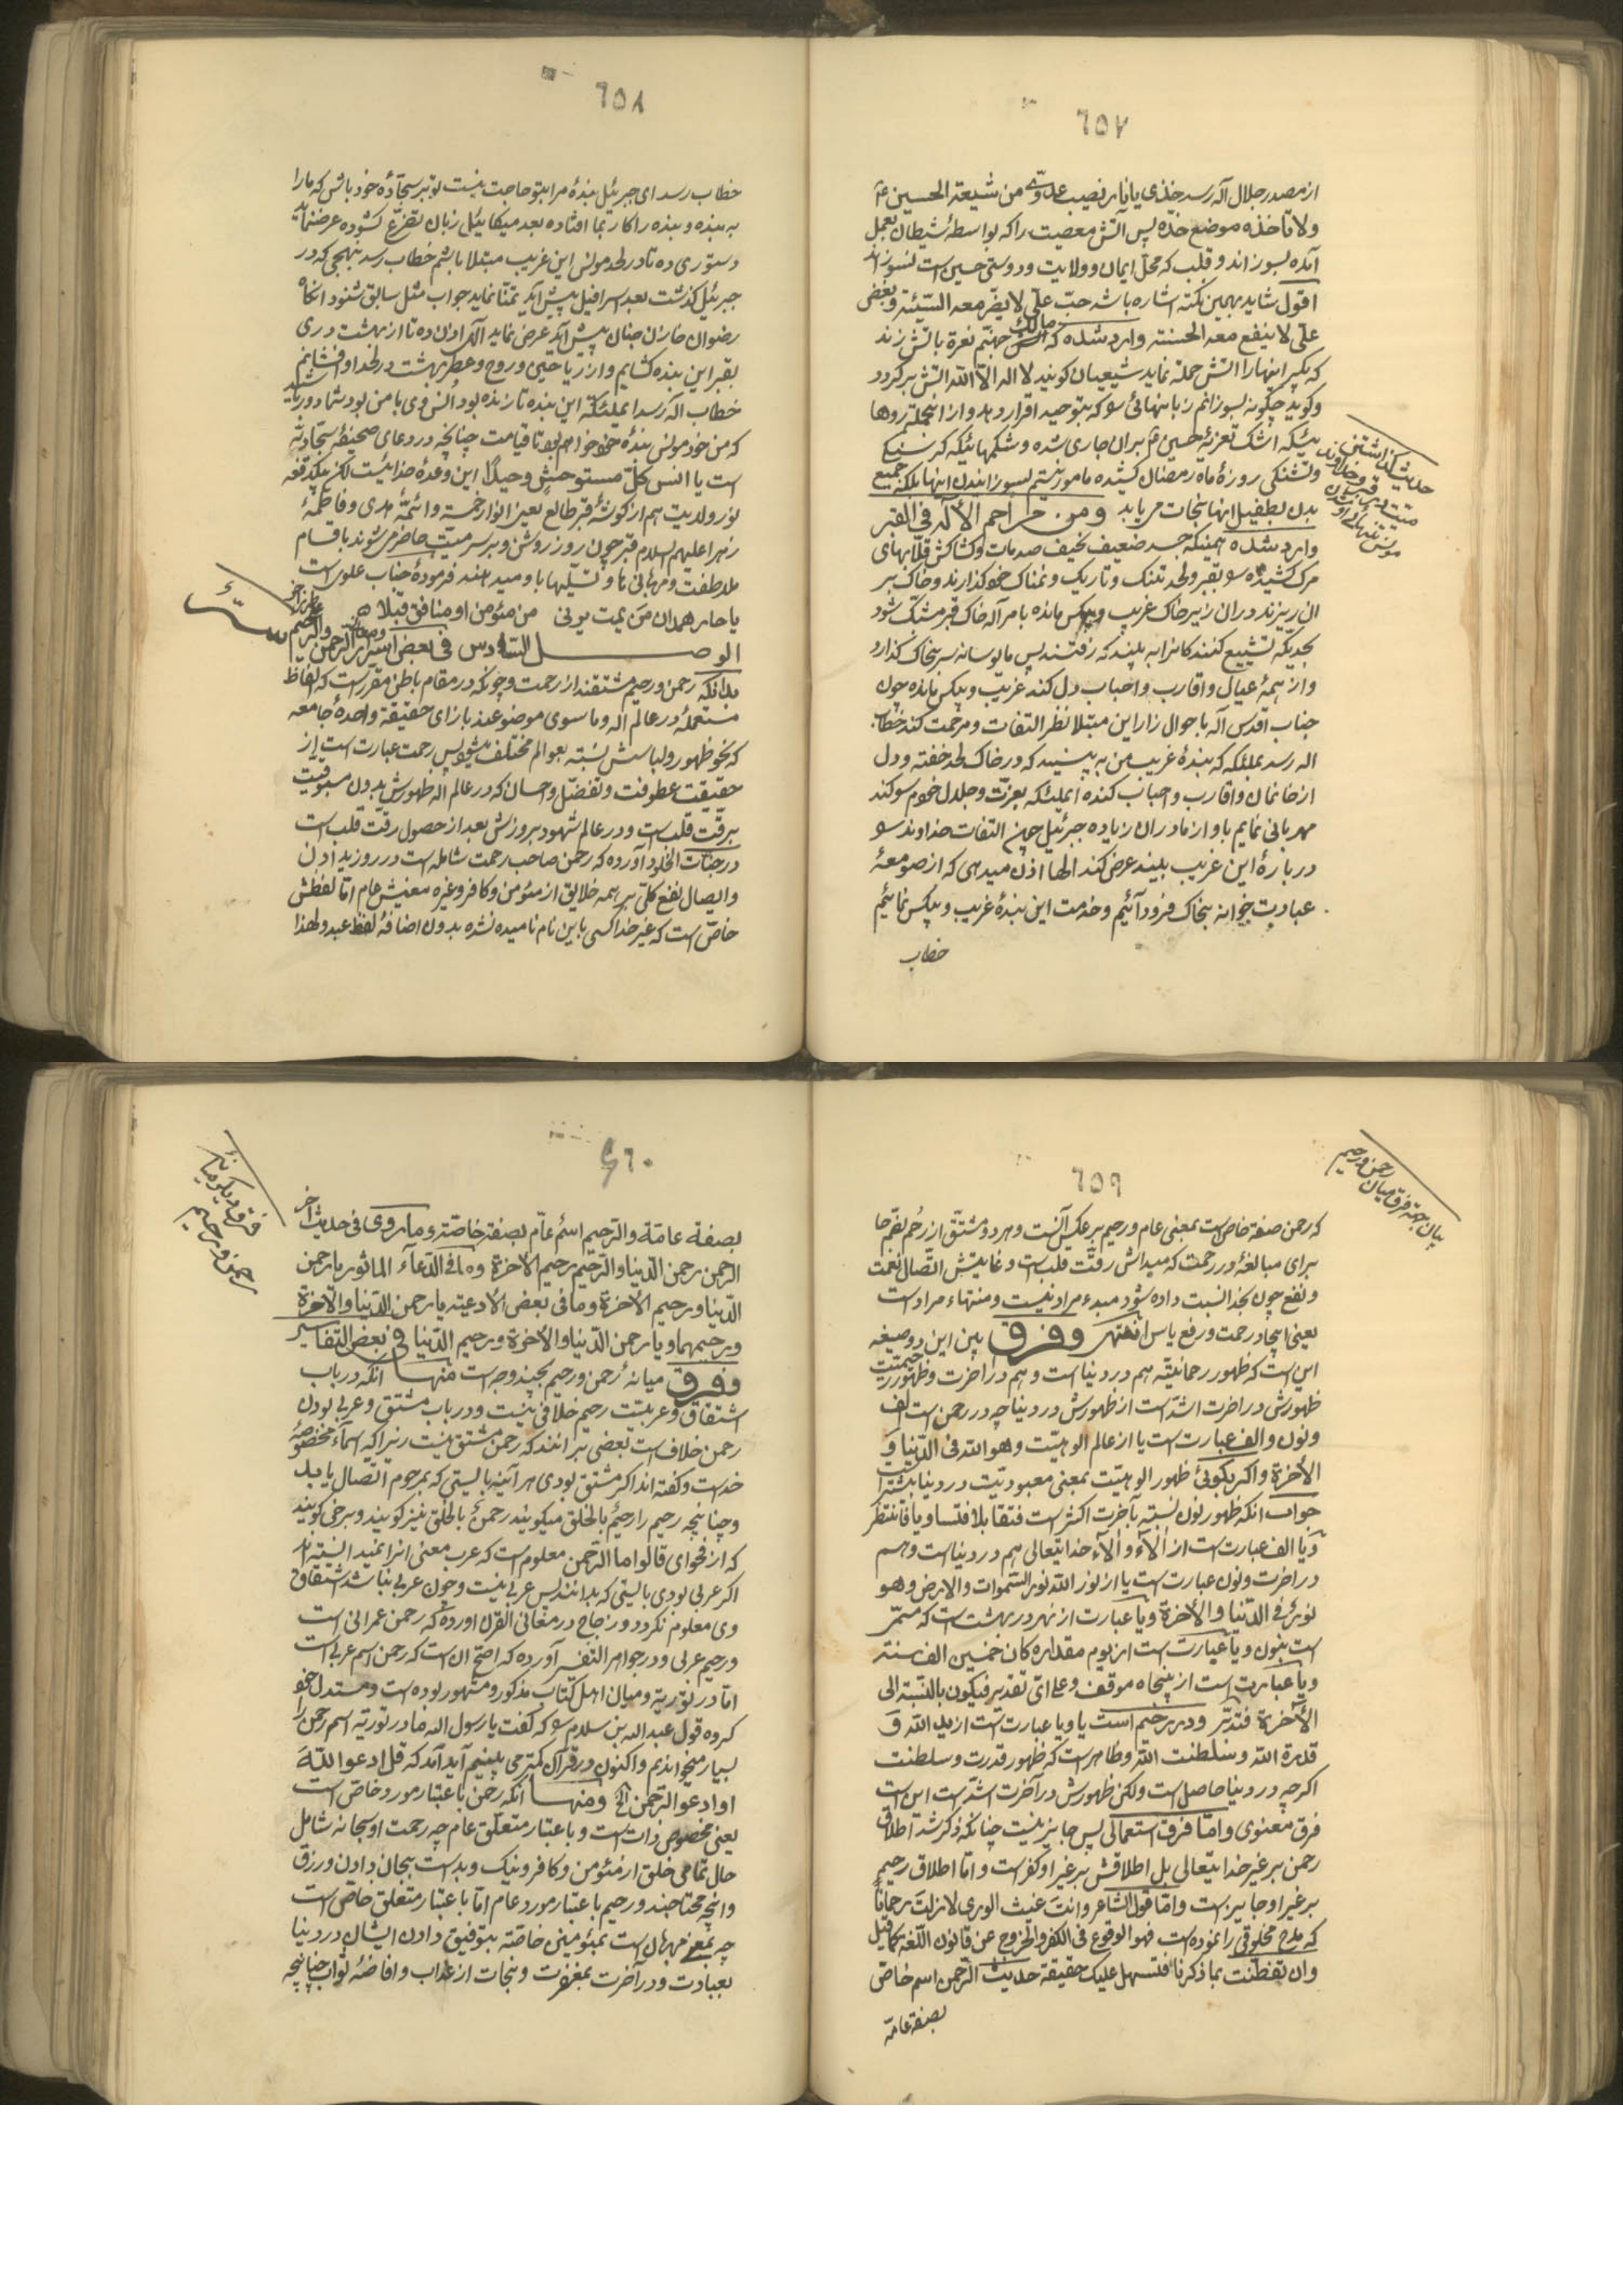 ٦٥٧
از مصدر جلال اله رسد خذی یا نار نصیب عدوّی من شیعة الحسین ع
ولا تاخذه موضع خذه پس آتش معصیت را که بواسطهٔ شیطان بعمل
آمده بسوزاند و قلب که محل ایمان و ولایت و دوستی حسین است نسوزاند
اقول شاید بهمین نکته اشاره باشد حبّ علی لا یضر معه السّیئة و بغض
علی لا ینفع معه الحسنة وارد شده که مالک جهنّم نعره باتش زند
که بگیر اینها را اتش حمله نماید شیعیان کویند لا اله الّا الله اتش برکردد
و کوید چکونه بسوزانم زبانهائی که بتوحید اقرار دهد و از انجمله روها
ئیکه اشک تعزیهٔ حسین ع بران جاری شده و شکمهائیکه کرسنکی
و تشنکی روزهٔ ماه رمضان کشیده مامور نیستم بسوزانیدن اینها بلکه جمیع
بدن بطفیل اینها نجات می یابد ومن مراحم الأله فی القبر
وارد شده همینکه جسد ضعیف نحیف صدمات و کشاکش قلّابهای
مرک کشیده بقبر و لحد تنک و تاریک و نمناک خود کذارند و خاک بر
ان ریزند دران زیر خاک غریب و بیکس مانده بامر اله خاک قبر مشبّک شود
بحدیکه تشییع کنندکانرا به بیند که رفتند پس مایوسانه سر بخاک کذارد
و از همهٔ عیال و اقارب و احباب دل کند غریب و بیکس مانده چون
جناب اقدس اله باحوال زار این مبتلا نظر التفات و مرحمت کند خطاب
اله رسد بملئکه که بندهٔ غریب من به بینید که در خاک لحد خفته و دل
از خانمان و اقارب و احباب کنده ایملئکه بعزّت و جلال خودم سوکند
مهربانی نمایم باو از مادران زیاده جبرئیل چون التفات خداوند
در بارهٔ این غریب بیند عرض کند الها اذن میدهی که از صومعهٔ
عبادت خود به بخاک فرود آئیم و خدمت این بندهٔ غریب و بیکس نمائیم
خطاب
حدیث کذاشتن
میّت در قبر و خداوند
مونس تنهائی او
٦٥٨
خطاب رسد ای جبرئیل بندهٔ مرا بتو حاجت نیست تو بر سجّادهٔ خود باش که مارا
به بنده و بنده را کار بما افتاده بعد میکائیل زبان تضرّع کشوده عرض نماید
دستوری ده تا در لحد مونس این غریب مبتلا باشم خطاب رسد بنهجی که در
جبرئیل کذشت بعد اسرافیل پیش اید تمنّا نماید جواب مثل سابق شنود انکاه
رضوان خازن جنان پیش اید عرض نماید الها اذن ده تا از بهشت دری
بقبر این بنده کشایم و از ریاحین و روح و عطر بهشت در لحد او افشانم
خطاب اله رسد ایملئکه این بنده تا زنده بود انس وی با من بود شما دور باشید
که من خود مونس بندهٔ خود خواهم بود تا قیامت چنانچه در دعای صحیفهٔ سجّادیّه
است یا انس کلّ مستوحش وحیداً این وعدهٔ خدائیست لکن بیکدفعه
نور ولایت هم از کوشهٔ قبر طالع یعنی انوار خمسه و ائمّهٔ هدی و فاطمهٔ
زهرا علیهم السلام قبر چون روز روشن و بر سر میّت حاضر می شوند باقسام
ملاطفت و مهربانی ها و تسلّیها باو میدهند فرمودهٔ جناب علوی است
یا حار همدان من یمت یرنی من مئومن او منافق قبلا
الوصل السّادس فی بعض اسرار الرّحمن والرّحیم
بدانکه رحمن و رحیم مشتقند از رحمت و چونکه در مقام باطن مقرر است که الفاظ
مستعملهٔ در عالم اله و ما سوی موضوعند بازای حقیقة واحدهٔ جامعه
که نحو ظهور و لباسش نسبة بعوالم مختلف میشود پس رحمت عبارت است از
حقیقت عطوفت و تفضّل و احسان که در عالم اله ظهورش بدون مسبوقیّت
برقّت قلب است و در عالم شهود بروزش بعد از حصول رقّت قلب است
در جنّات الخلود آورده که رحمن صاحب رحمت شامله است در روزی دادن
و ایصال نفع کلّی بر همه خلایق از مئومن و کافر و غیره معنیش عام امّا لفظش
خاصّ است که غیر خدا کسی باین نام نامیده نشده بدون اضافهٔ لفظ عبد و لهذا
٦٥٩
که رحمن صفة خاص است بمعنی عام و رحیم بر عکس آنست و هر دو مشتّق از رُحُم بضم حا
برای مبالغهٔ در رحمت که مبداش رقّت قلب است و غایتش اتّصال نعمت
و نفع چون بخدا نسبت داده شود مبدء مراد نیست و منتهاء مراد است
یعنی ایجاد رحمت و رفع یاس انتهی وفرق بین این دو صیغه
این است که ظهور رحمانیّة هم در دنیا است و هم در اخرت و ظهور رحیمیّت
ظهورش در اخرت اشدّ است از ظهورش در دنیا چه در رحمن است الف
و نون و الف عبارت است یا از عالم الوهیّت وهو الله فی الدّنیا و
الأخرة و اکر بکوئی ظهور الوهیّت بمعنی معبودیّت در دنیا بیشتر است
جواب انکه ظهور نون نسبة بآخرت اکثر است فتقابلا فتساویا فانتظر
و یا الف عبارت است از آلاء و آلاء خدایتعالی هم در دنیا است و هم
در اخرت و نون عبارت است یا از نور الله نور السّموات والارض وهو
نوره فی الدّنیا والأخرة و یا عبارت از نهر در بهشت است که مسمّی
است بنون و یا عبارت است از یوم مقداره کان خمسین الف سنة
و یا عبارت است از پنجاه موقف و علی ای تقدیر فیکون بالنّسبة الی
الأخرة فتدبّر و در رحیم است یا و یا عبارت است از ید الله و
قدرة الله و سلطنت الله و ظاهر است که ظهور قدرت و سلطنت
اکرچه در دنیا حاصل است ولکن ظهورش در آخرت اشدّ است این است
فرق معنوی و امّا فرق استعمالی پس جایز نیست چنانکه ذکر شد اطلاق
رحمن بر غیر خدایتعالی بل اطلاقش بر غیر او کفر است و امّا اطلاق رحیم
بر غیر او جایز است و امّا قول الشاعر وانت غیث الوری لا زلت رحمانا
که مدح مخلوقی را نموده است فهو الوقوع فی الکفر والخروج عن قانون اللّغة کما قیل
وان تفطّنت بما ذکرنا فتسهل علیک حقیقة حدیث الرّحمن اسم خاصّ
بصفة عامّة
بیان جهة فرق میان
رحمن و رحیم
٦٦٠
بصفة عامّة والرّحیم اسم عامّ بصفة خاصّة و ما روی فی حدیث اخر
الرّحمن رحمن الدّنیا والرّحیم رحیم الأخرة و ما فی الدّعآء الماثور یا رحمن
الدّنیا و رحیم الأخرة وما فی بعض الأدعیة یا رحمن الدّنیا والأخرة
ورحیمهما و یا رحمن الدّنیا والأخرة ورحیم الدّنیا فی بعض التّفاسیر
وفرق میانهٔ رحمن و رحیم بچند وجه است منها انکه در باب
اشتقاق و عربیّت رحیم خلافی نیست و در باب مشتق و عربی بودن
رحمن خلاف است بعضی برانند که رحمن مشتق نیست زیرا که اسمآء مخصوصهٔ
خداست و کفته اند اکر مشتق بودی هر آئینه بایستی که بمرحوم اتّصال یابد
و چنانچه رحیم را رحیمٌ بالخلق میکویند رحمنٌ بالخلق نیز کویند و برخی کویند
که از فحوای قالوا ما الرّحمن معلوم است که عرب معنی انرا نمیدانسته اند
اکر عربی بودی بایستی که بدانند پس عربی نیست و چون عربی نباشد اشتقاق
وی معلوم نکردد و زجاج در معانی القران اورده که رحمن عبرانی است
و رحیم عربی و در جواهر التفسیر آورده که اصح ان است که رحمن اسم عربی است
امّا در توریة و میان اهل کتاب مذکور و مشهور بوده است و مستدل خود
کرده قول عبد الله بن سلام که کفت یا رسول الله ما در توریة اسم رحمن را
بسیار میخواندیم و اکنون در قران کمتر می بینیم آیه آمد که قل ادعوا اللّه
او ادعو الرّحمن الخ ومنها انکه رحمن باعتبار مورد خاصّ است
یعنی مخصوص ذات است و باعتبار متعلّق عام چه رحمت او سبحانه شامل
حال تمامی خلق از مئومن و کافر و نیک و بد است بجان دادن و رزق
و انچه محتاجند و رحیم باعتبار مورد عام امّا باعتبار متعلّق خاصّ است
چه بمعنی مهربان است بمئومنین خاصّة بتوفیق دادن ایشان در دنیا
بعبادت و در آخرت بمغفرت و نجات از عذاب و افاضهٔ ثواب چنانچه
فرق دیکر میانهٔ
رحمن و رحیم